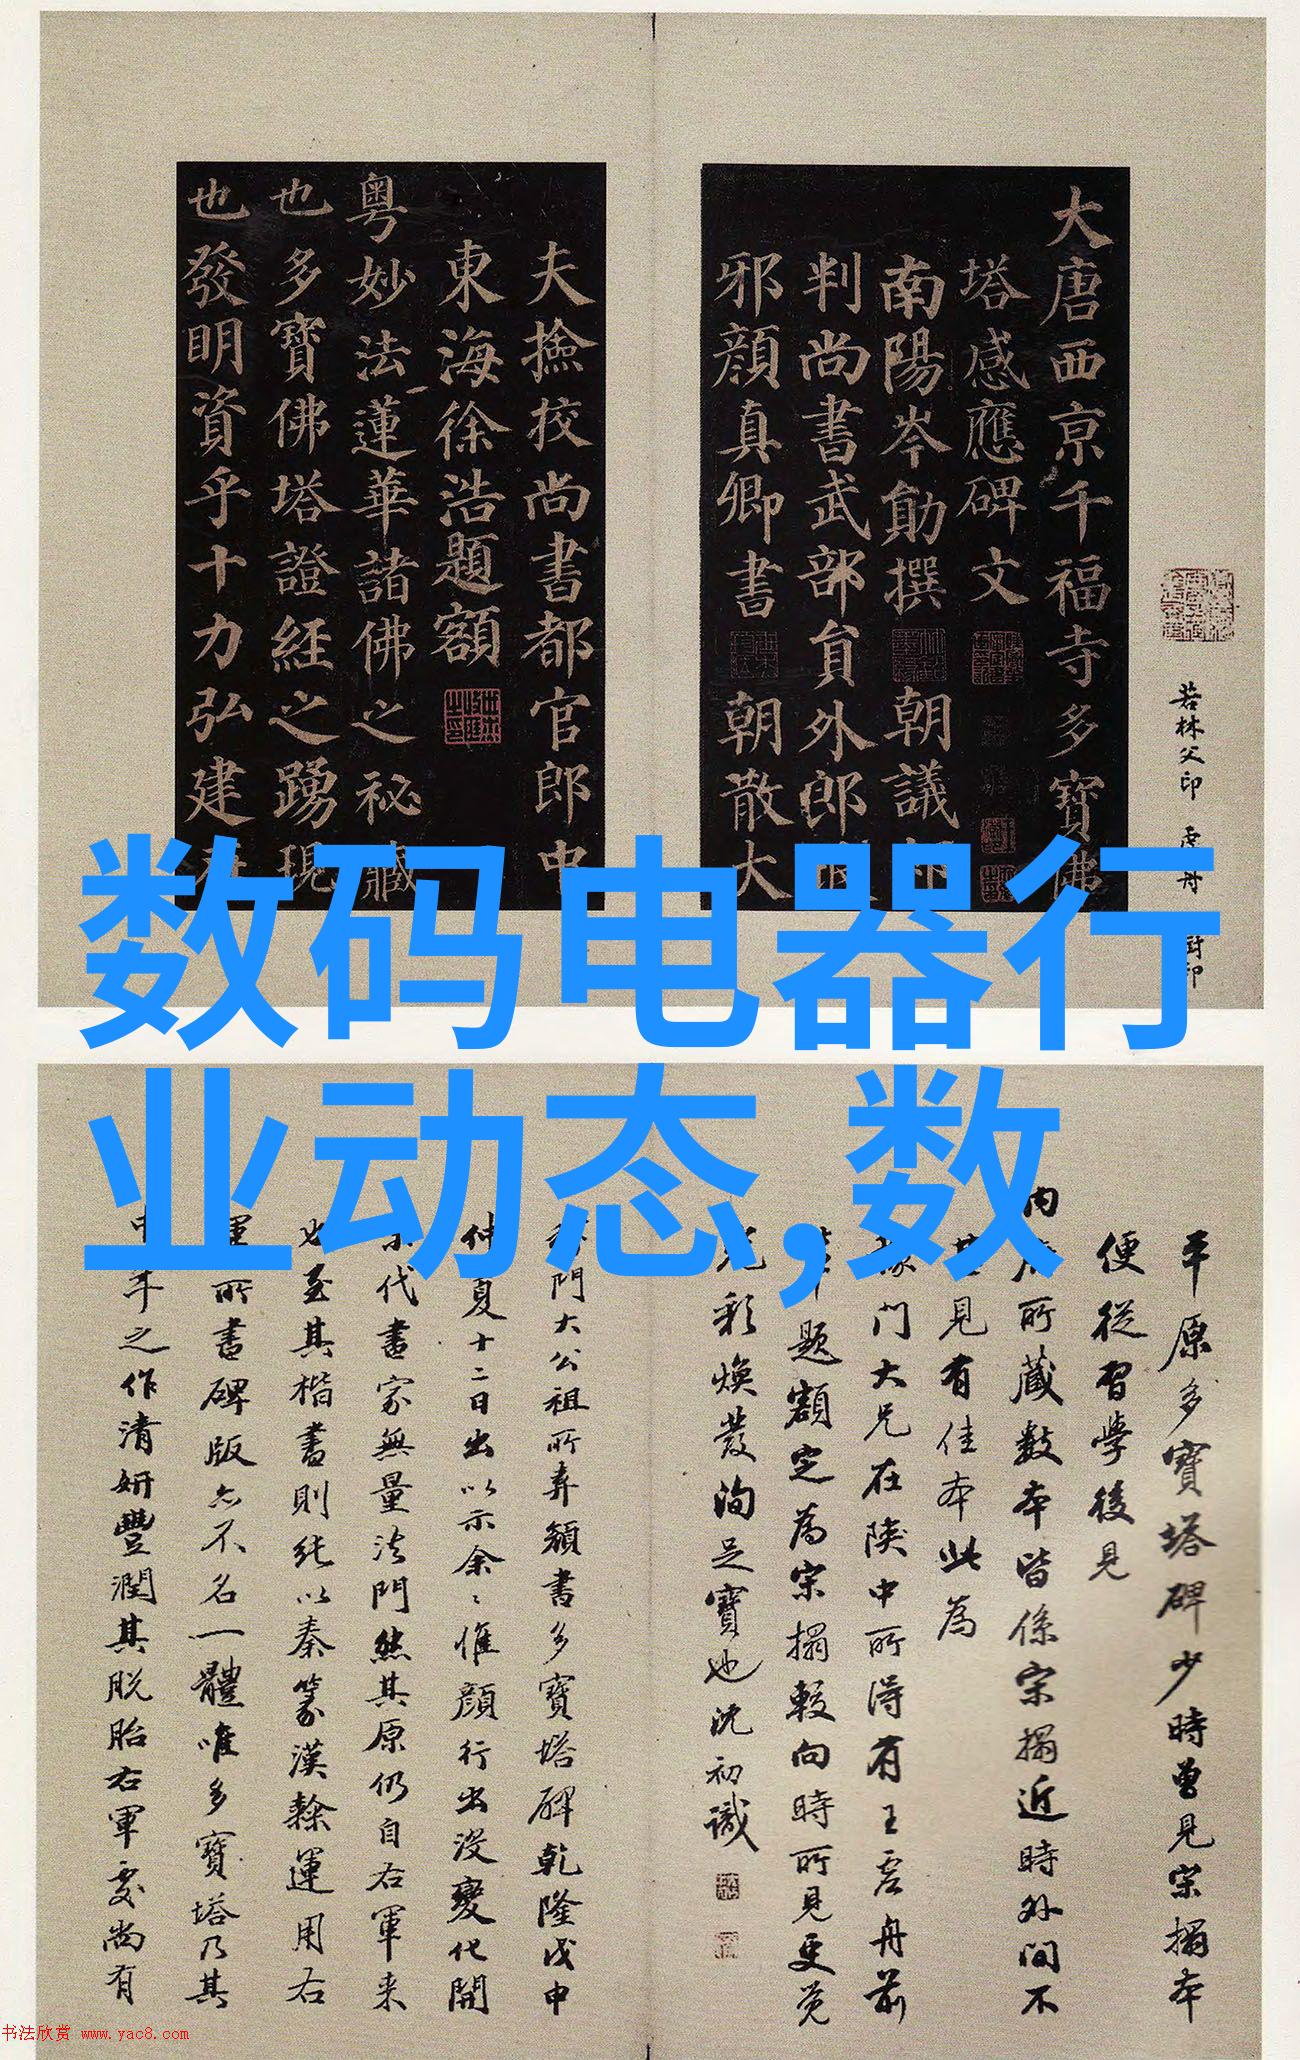 大唐西京千福寺多寶佛
塔感應碑文
南陽岑勛撰
朝議
判尚書武部員外郎
邪顏真卿書
朝散大
夫撿挍尚書都官郎中
東海徐浩題額
粵妙法蓮華諸佛之祕藏
也多寶佛塔證經之踴現
也發明資乎十力弘建
若林父印
数码电器行
业动态,数
平原多寶塔碑少時曾見宋搨本
便從習學後見
内府所藏數本皆係宋搨近時外間不
其見有佳本此為
門大兄在陝中所得有王虛舟前
題額定為宋搨較向時所見更覺
光彩煥發洵足寶也沈初識
門大公祖所弆顏書多寶塔碑乾隆戊申
仲夏十二日出以示余〻惟顏行出沒變化開
宋代書家無量法門然其原仍自右軍来
也至其楷書則純以秦篆漢隸運用右
軍所書碑版亦不名一體唯多寶塔乃其
中年之作清妍豐潤其脫胎右軍處尚有
书法欣赏 www.yac8.com